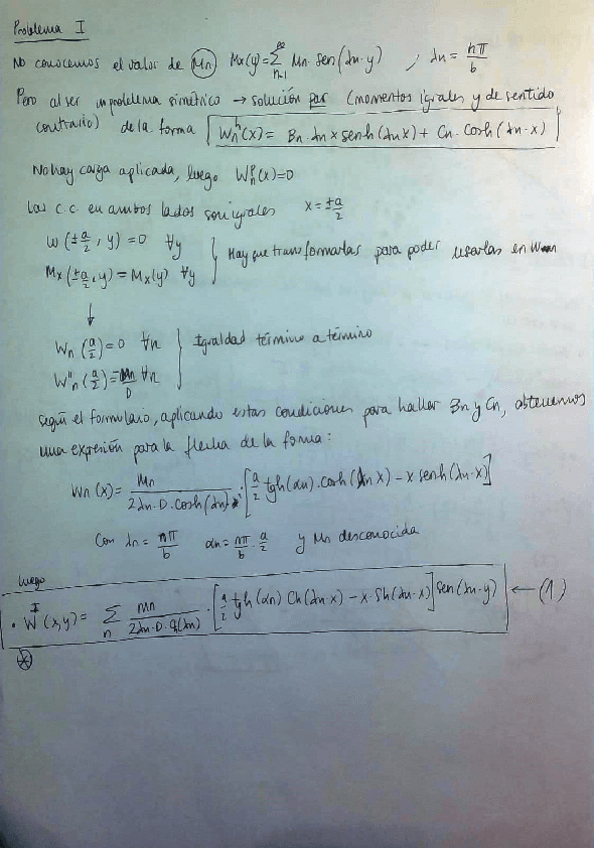 Problema I
No conocemos el valor de Mn Mx(y)=∑_{n=1}^{∞} Mn · sen(λn·y) , λn = nπ/b
Pero al ser un problema simétrico → solución par (momentos iguales y de sentido
contrario) de la forma Wn^h(x) = Bn·λn x senh(λn x) + Cn·cosh(λn·x)
No hay carga aplicada, luego Wn^p(x)=0
Las c.c. en ambos lados son iguales x = ±a/2
W(±a/2, y) = 0 ∀y
Mx(±a/2, y) = Mx(y) ∀y
Hay que transformarlas para poder usarlas en Wn
↓
Wn(a/2) = 0 ∀n
W''n(a/2) = -Mn/D ∀n
Igualdad término a término
según el formulario, aplicando estas condiciones para hallar Bn y Cn, obtenemos
una expresión para la flecha de la forma:
Wn(x) = Mn/(2λn·D·cosh(αn)) · [a/2 tgh(αn)·cosh(λn x) − x senh(λn·x)]
Con λn = nπ/b αn = nπ/b · a/2 y Mn desconocida
luego
· W^I(x,y) = ∑_n Mn/(2λn·D·Ch(αn)) · [a/2 tgh(αn) Ch(λn·x) − x·Sh(λn·x)] sen(λn·y) ← (1)
*